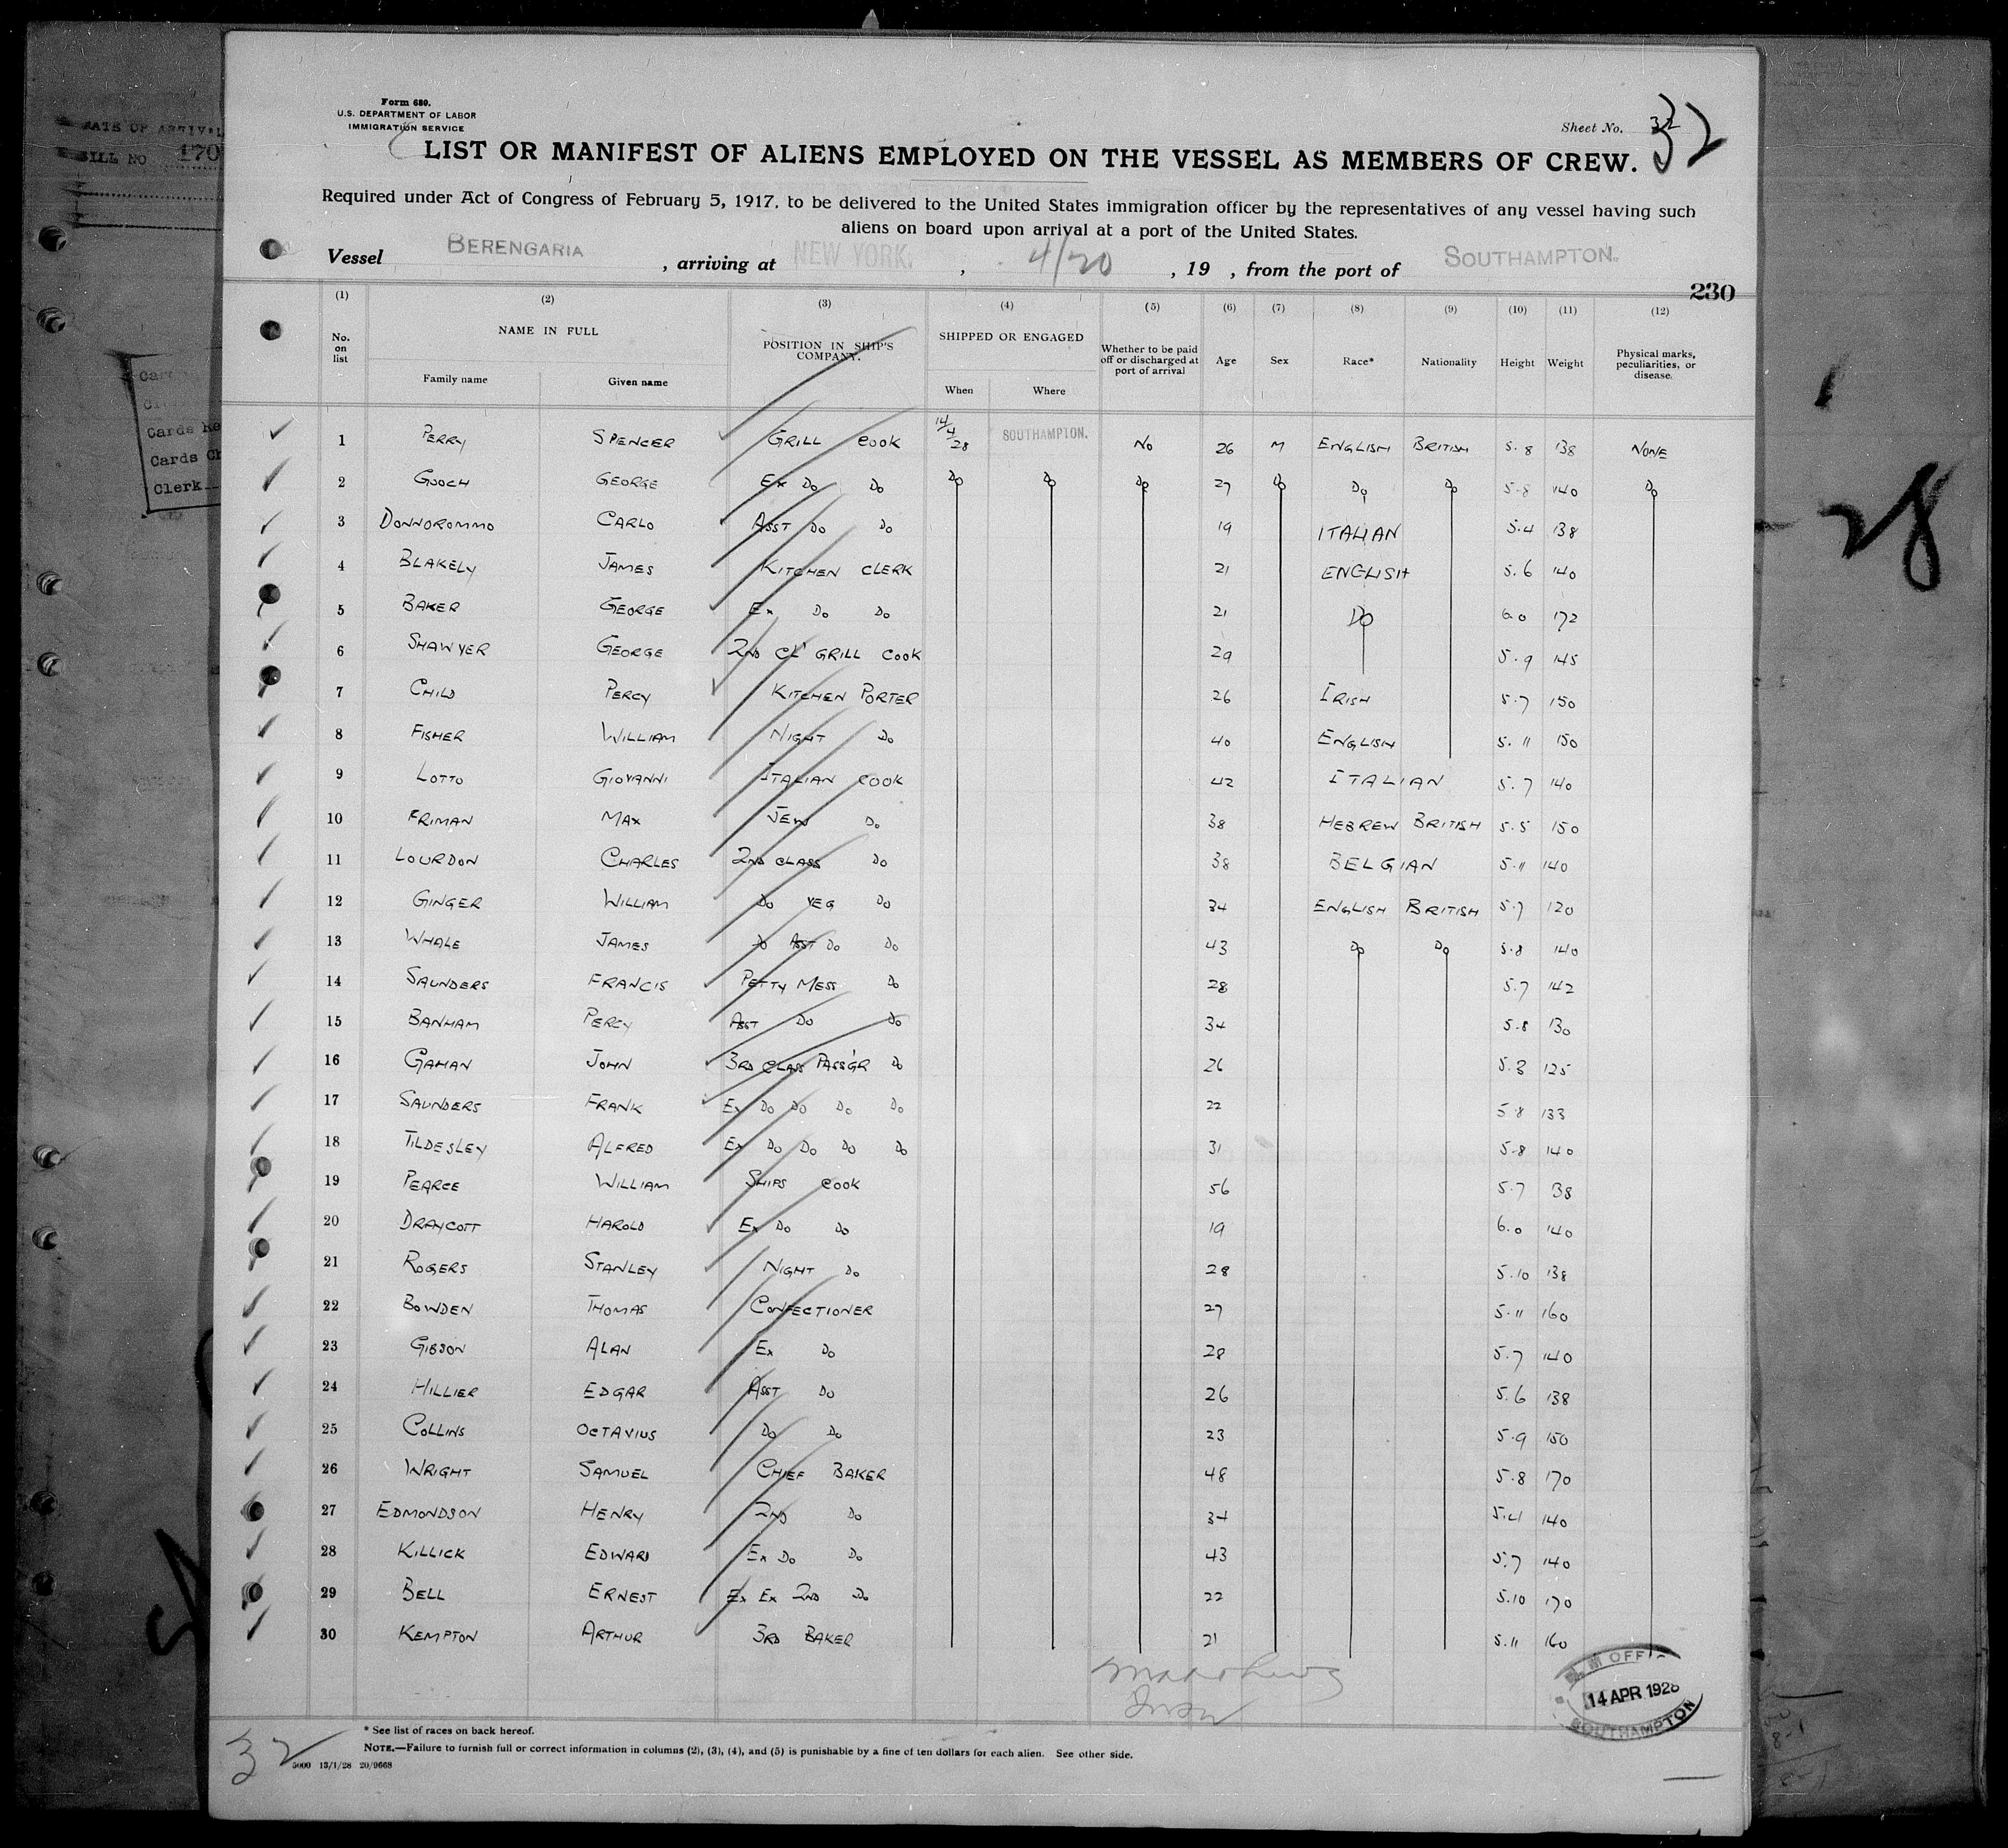 RATE OF ARRIVAL
BILL NO 170
Cards Re
Cards Ch
Clerk
Form 680.
U.S. DEPARTMENT OF LABOR
IMMIGRATION SERVICE
Sheet No. 32
32
LIST OR MANIFEST OF ALIENS EMPLOYED ON THE VESSEL AS MEMBERS OF CREW.
Required under Act of Congress of February 5, 1917, to be delivered to the United States immigration officer by the representatives of any vessel having such
aliens on board upon arrival at a port of the United States.
Vessel BERENGARIA, arriving at NEW YORK, 4/20, 19 , from the port of SOUTHAMPTON.
230
(1) (2) (3) (4) (5) (6) (7) (8) (9) (10) (11) (12)
No. on list NAME IN FULL POSITION IN SHIP'S COMPANY. SHIPPED OR ENGAGED Whether to be paid off or discharged at port of arrival Age Sex Race* Nationality Height Weight Physical marks, peculiarities, or disease.
Family name Given name When Where
1 PERRY SPENCER GRILL COOK 14/4/28 SOUTHAMPTON. NO 26 M ENGLISH BRITISH 5.8 138 NONE
2 GOOCH GEORGE EX DO DO DO DO DO 27 DO DO DO 5.8 140 DO
3 DONNOROMMO CARLO ASST DO DO 19 ITALIAN 5.4 138
4 BLAKELY JAMES KITCHEN CLERK 21 ENGLISH 5.6 140
5 BAKER GEORGE EX DO DO 21 DO 6.0 172
6 SHAWYER GEORGE 2ND CL' GRILL COOK 29 5.9 145
7 CHILD PERCY KITCHEN PORTER 26 IRISH 5.7 150
8 FISHER WILLIAM NIGHT DO 40 ENGLISH 5.11 150
9 LOTTO GIOVANNI ITALIAN COOK 42 ITALIAN 5.7 140
10 FRIMAN MAX JEW DO 38 HEBREW BRITISH 5.5 150
11 LOURDON CHARLES 2ND CLASS DO 38 BELGIAN 5.11 140
12 GINGER WILLIAM DO VEG DO 34 ENGLISH BRITISH 5.7 120
13 WHALE JAMES DO ASST DO DO 43 DO DO 5.8 140
14 SAUNDERS FRANCIS PETTY MESS DO 28 5.7 142
15 BANHAM PERCY ASST DO DO 34 5.8 130
16 GAHAN JOHN 3RD CLASS PASS'GR DO 26 5.8 125
17 SAUNDERS FRANK EX DO DO DO DO 22 5.8 133
18 TILDESLEY ALFRED EX DO DO DO DO 31 5.8 140
19 PEARCE WILLIAM SHIPS COOK 56 5.7 138
20 DRAYCOTT HAROLD EX DO DO 19 6.0 140
21 ROGERS STANLEY NIGHT DO 28 5.10 138
22 BOWDEN THOMAS CONFECTIONER 27 5.11 160
23 GIBSON ALAN EX DO 28 5.7 140
24 HILLIER EDGAR ASST DO 26 5.6 138
25 COLLINS OCTAVIUS DO DO 23 5.9 150
26 WRIGHT SAMUEL CHIEF BAKER 48 5.8 170
27 EDMONDSON HENRY 2ND DO 34 5.4 140
28 KILLICK EDWARD EX DO DO 43 5.7 140
29 BELL ERNEST EX EX 2ND DO 22 5.10 170
30 KEMPTON ARTHUR 3RD BAKER 21 5.11 160
14 APR 1928
SOUTHAMPTON
* See list of races on back hereof.
NOTE.—Failure to furnish full or correct information in columns (2), (3), (4), and (5) is punishable by a fine of ten dollars for each alien. See other side.
5000 13/1/28 20/9668
32
28